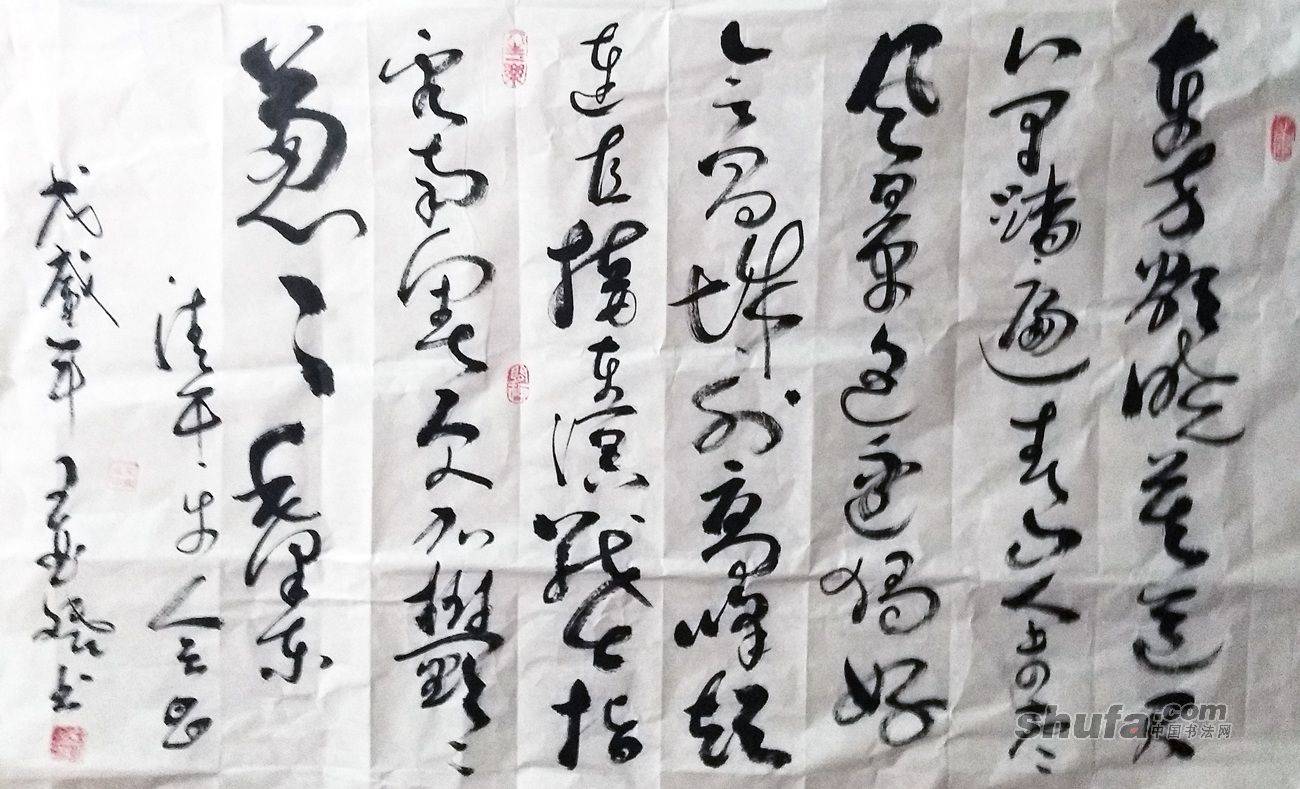 東方欲曉莫道君
行早踏遍青山人未老
风景這邊獨好
会昌城外高峰颠
连直接东溟战士指
看南粤更加鬱々
葱々毛泽东
清平乐会昌
戊戌年王书
Shufa.com
中国书法网